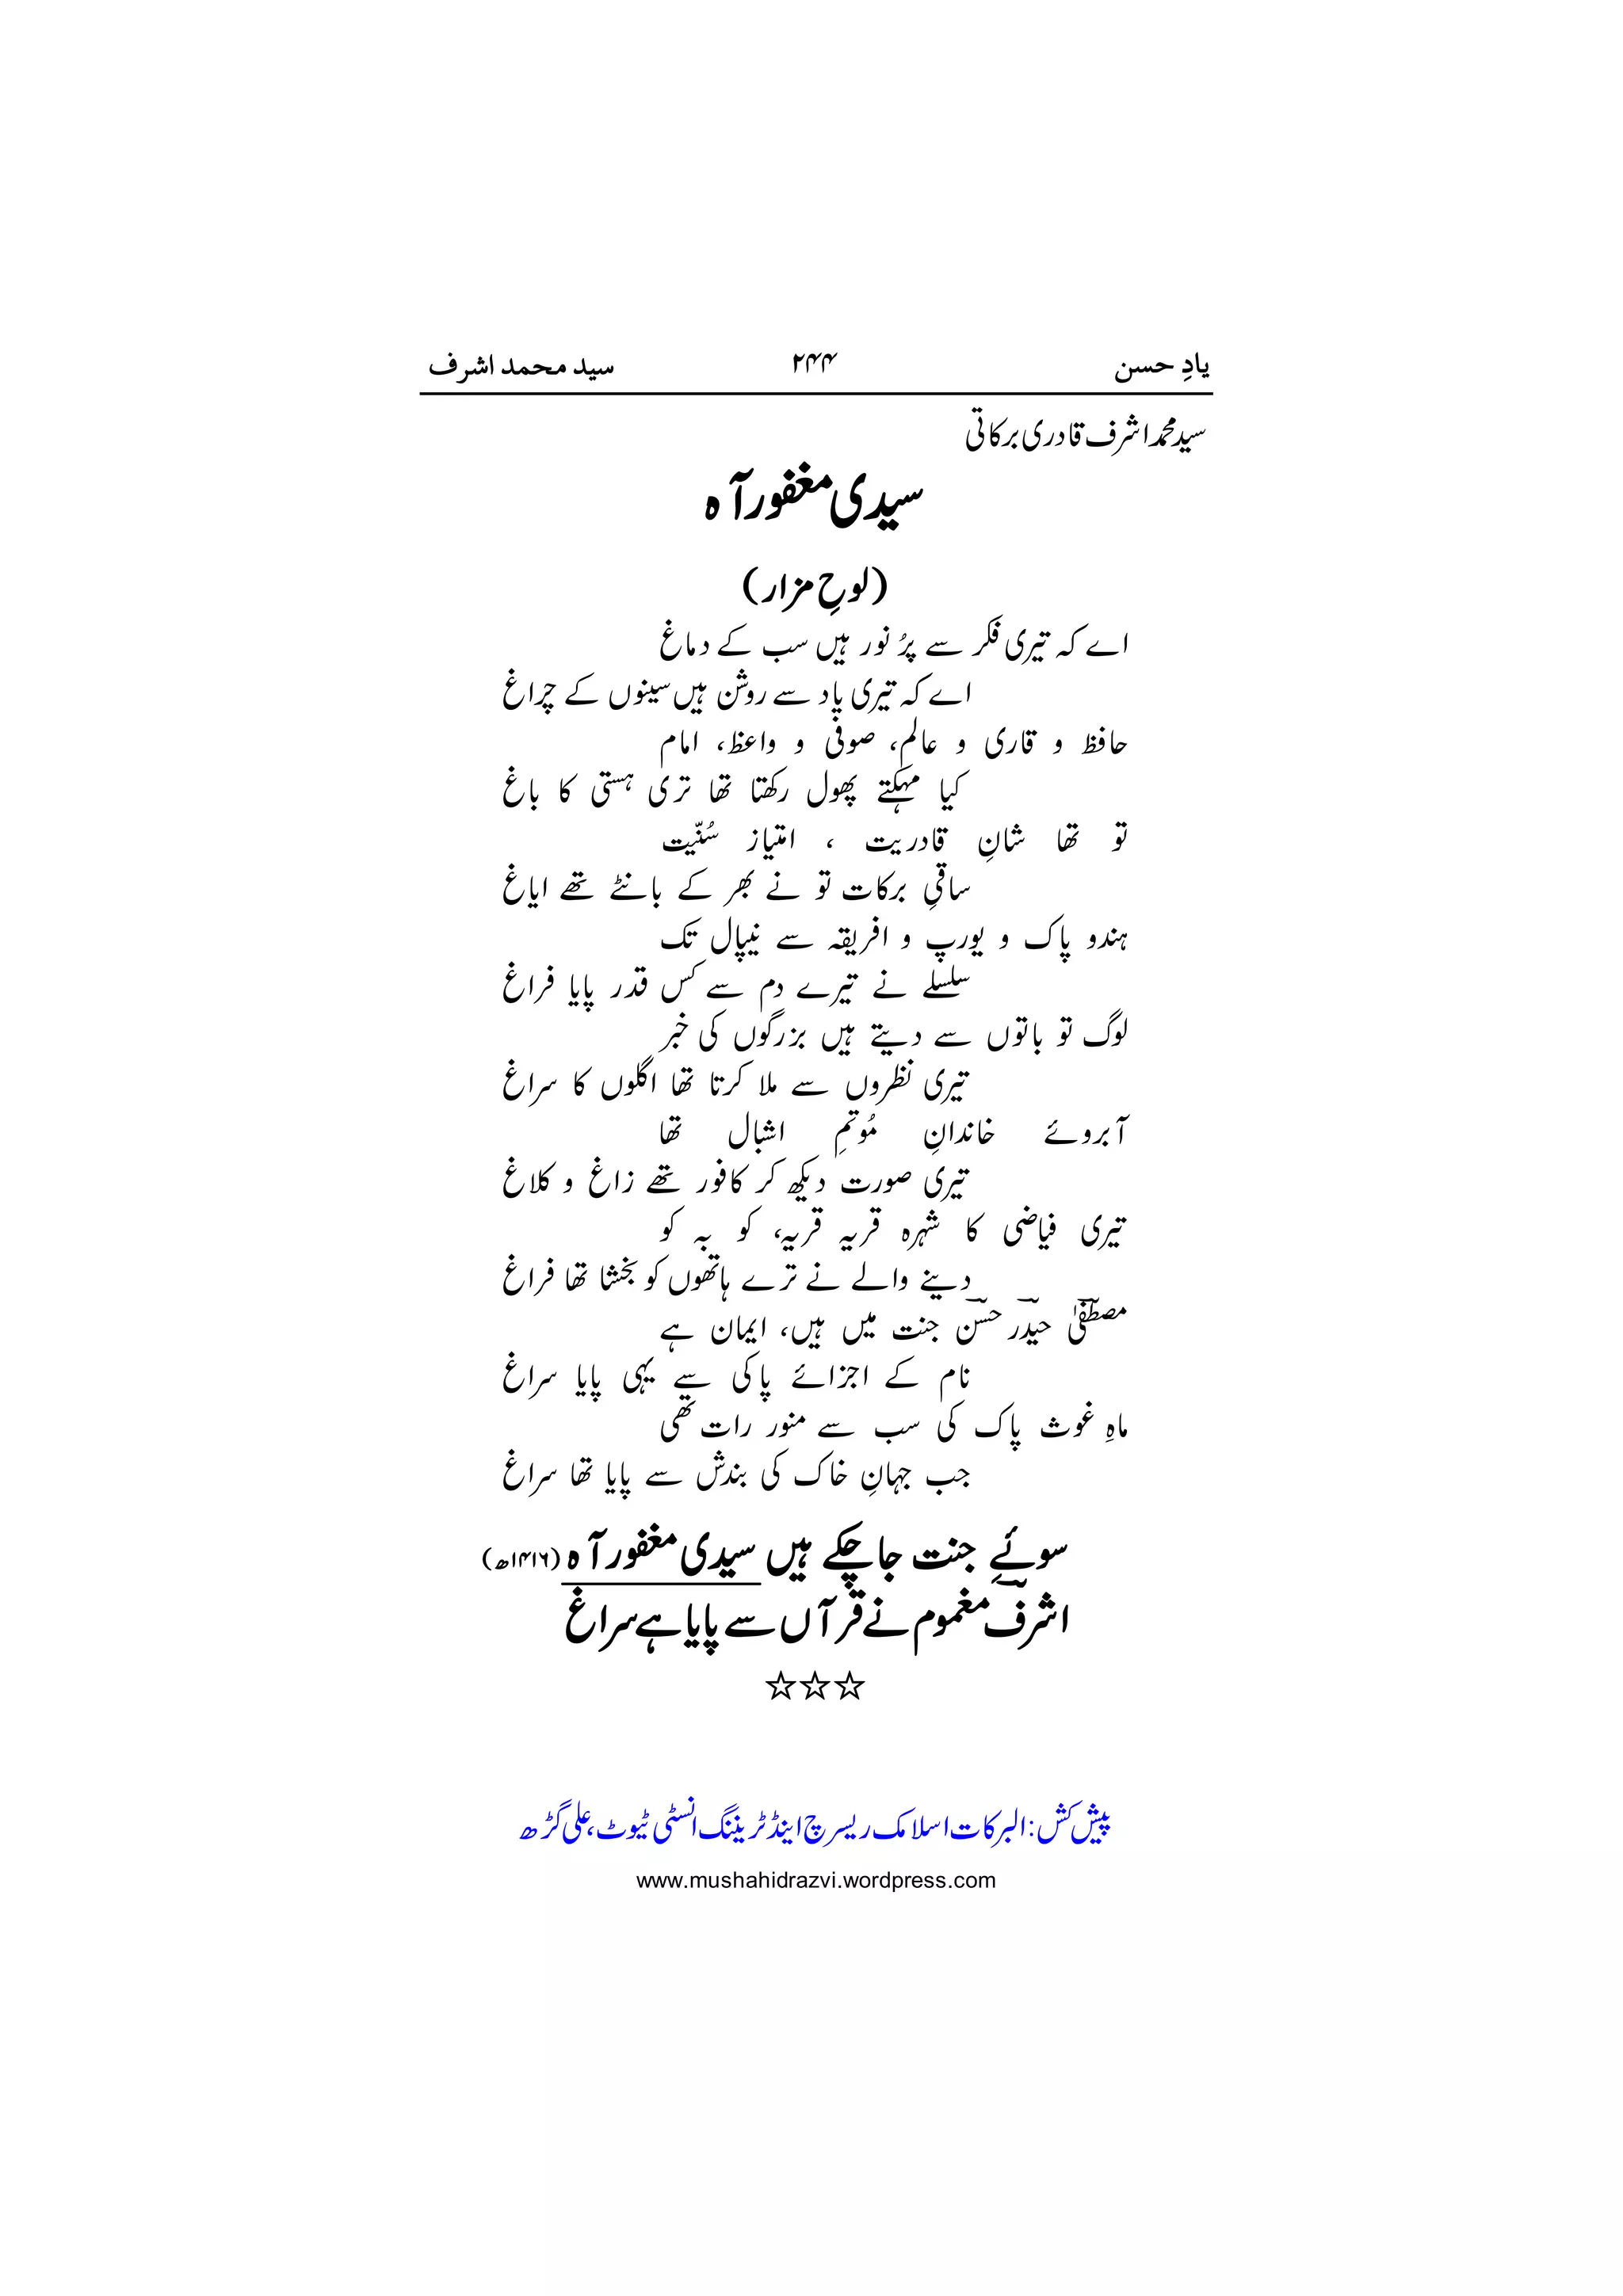 یادِ حسن ۲۴۴ سید محمد اشرف
سید محمد اشرف قادری برکاتی
سیدی مغفور آہ
(لوحِ مزار)
اے کہ تیری فکر سے پُر نور ہیں سب کے دماغ
اے کہ تیری یاد سے روشن ہیں سینوں کے چراغ
حافظ و قاری و عالم، صوفی و واعظ، امام
ایک مہکتے پھول رکھتا تھا تری ہستی کا باغ
تو تھا شانِ قادریت ، امتیاز سُنّیت
ساقیِ برکات تو نے بھر کے بانٹے تھے ایاغ
ہندو پاک و یورپ و افریقہ سے نیپال تک
سلسلے نے تیرے دم سے کس قدر پایا فراغ
لوگ تو باتوں سے دیتے ہیں بزرگوں کی خبر
تیری نظروں سے ملا کرتا تھا اگلوں کا سراغ
آبروئے خاندانِ مُوتمِ اشبال تھا
تیری صورت دیکھ کر کافور تھے زاغ و کلاغ
تیری فیاضی کا شہرہ قریہ قریہ، کو بہ کو
دینے والے نے ترے ہاتھوں کو بخشا تھا فراغ
مصطفیٰؔ حیدرؔ حسنؔ جنت میں ہیں، ایمان ہے
نام کے اجزائے پاکی سے یہی پایا سراغ
ماہِ غوث پاک کی سب سے منور رات تھی
جب جہانِ خاک کی بندش سے پایا تھا سراغ
سوئےِ جنت جاچکے ہیں سیدی مغفور آہ (۱۴۱۶ھ)
اشرفؔ مغموم نے قرآں سے پایا ہے سراغ
☆☆☆
پیش کش: البرکات اسلامک ریسرچ اینڈ ٹریننگ انسٹی ٹیوٹ، علی گڑھ
www.mushahidrazvi.wordpress.com